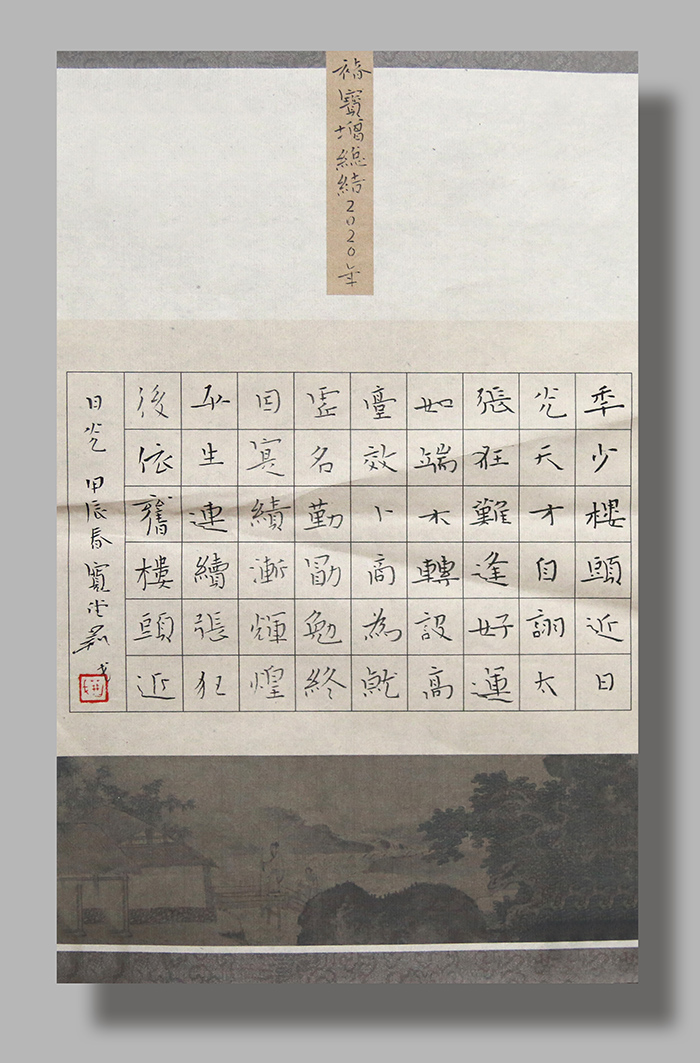 褚寶增總結2020年
秊少樓頭近日
光天才自詡太
張狂難逢好運
如端木轉設高
臺效卜商為就
虛名勤勖勉終
因寔績漸輝煌
平生連續張狂
後依舊樓頭近
日光 甲辰春